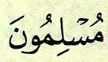 مُسۡلِمُونَ